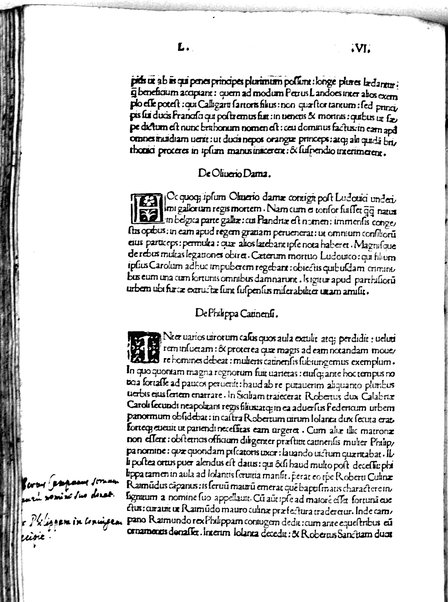 L. .VI.
pitis ut ab iis qui penes principes plurimum possunt: longe plures lædantur:
q̃ beneficium accipiant: quem ad modum Petrus Landoes inter alios exem
plo esse potest: qui Calligarii sartoris filius: non quæstor tantum: sed princi
pis sui ducis Francisci qui postremus fuit: in ueneris & mortuus: quibus ut sæ
pe dictum est nunc brithonum nomen est: ceu dominus factus: in eam apd
omnes inuidiam uenit: ut ducis nepos orangiæ princeps: atq; alii quidã bri
thonici proceres in ipsum manus iniicerent: & suspendio interimerent.
De Oliuerio Dama.
HOc quoq; ipsum Oliuerio damæ contigit post Ludouici undeci
mi gallorum regis mortem. Nam cum is tonsor fuisset q̃q̃ natus
in belgica parte galliæ: cui Flandriæ est nomen: immensis conge
stis opibus: in eam apud regem gratiam peruenerat: ut omnium consiliorũ
eius particeps: permulta: quæ alios latebant ipse nota haberet. Magnisque
de rebus multas legationes obiret. Cæterum mortuo Ludouico: qui filium
ipsius Carolum adhuc impuberem regebant: obiectis quibusdam crimini
bus eum una cum fortunis omnibus damnarunt. Is igitur apud parrhisiorũ
urbem ubi furcæ extructæ sunt suspensus miserabiliter uitam amisit.
De Philippa Catinensi.
INter uarios uirorum casus quos aula extulit atq; perdidit: ueluti
rem insuetam: & proterea quæ magis ad eam notandam moue
re homines debeat: mulieris catinensis subiungemus exemplum.
In quo quoniam magna regnorum fuit uarietas: eiusq; ante hoc tempus no
titia fortasse ad paucos peruenit: haud ab re putauerim aliquanto pluribus
uerbis eius seriem enarrare. In Siciliam traiecerat Robertus dux Calabriæ
Caroli secundi neapolitani regis filius: atq; in ea aduersus Federicum urbem
panormum obsidebat: in castra Robertum uirum Iolanda dux secuta erat:
forteq; euenit ut pariendi necessitas eam urgeret. Cum aliæ illic matronæ
non essent: obstetricis officium diligenter præstitit catinensis mulier Philip
pa nomine: quæ quondam piscatoris uxor: lauando uictum quæritabat. Il
li postea ortus puer alendus est datus: qui & si haud multo post decessit: phi
lippa tamen in aula ad Iolantis seruitia mansit. Præerat eo tẽpe Roberti Culinæ
Raimũdus cãpanus: is seruũ maurũ emerat: quẽ baptismatis charactere in
signitum a nomine suo appellauit. Cũ aũt ipse ad maiorẽ esset fortunã eue
ctus: curauit ut Raimũdo mauro culinæ præfectura traderetur. Inde cam
pano Raimundo rex Philippam coniugem dedit: cum ante equestribus eũ
ornamentis donasset. Interim Iolanda decedit: & Robertus Sanctiam duxit